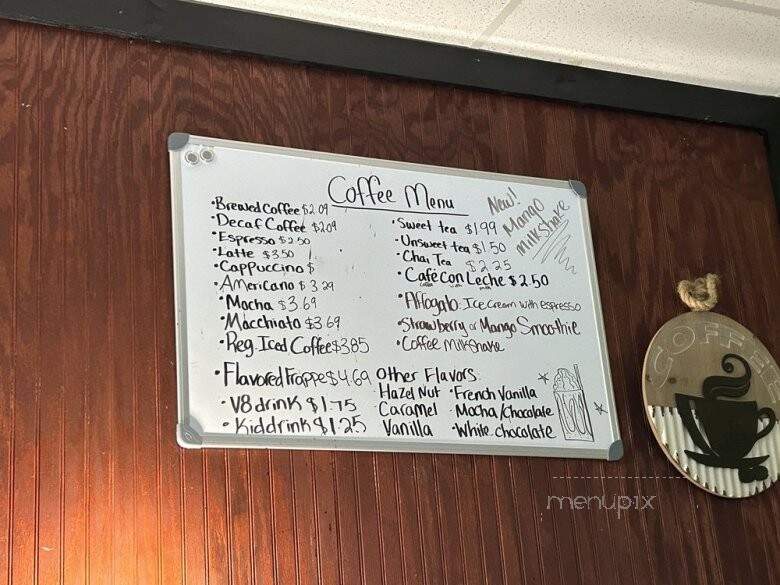 Coffee Menu
New!
Mango
milkshake
•Brewed Coffee $2.09
•Decaf Coffee $2.09
•Espresso $2.50
•Latte $3.50
•Cappuccino $
•Americano $3.29
•Mocha $3.69
•Macchiato $3.69
•Reg. Iced Coffee $3.85
•Flavored Frappe $4.69
•V8 drink $1.75
•Kid drink $1.25
•Sweet tea $1.99
•Unsweet tea $1.50
•Chai Tea $2.25
•Café con Leche $2.50
•Affogato: Ice Cream with espresso
•Strawberry or Mango Smoothie
•Coffee Milkshake
Other Flavors:
Hazel Nut •French Vanilla
Caramel •Mocha/Chocolate
Vanilla •White chocolate
COFFEE
menupix